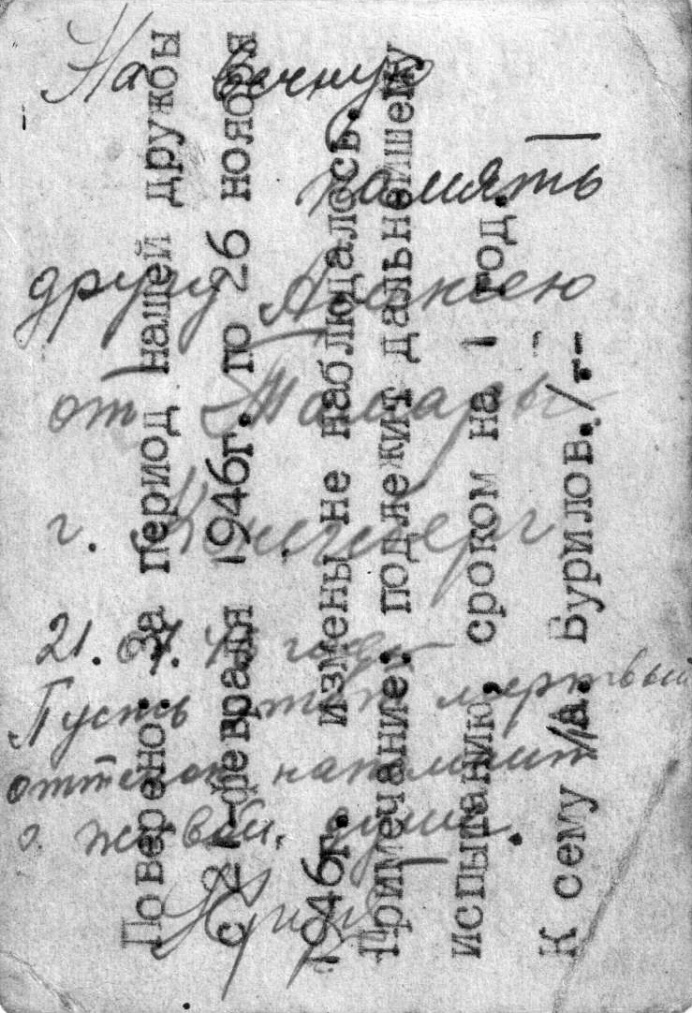 На вечную
память
другу Алексею
от Тамары
г. Кенигсберг
21. 07. года
Пусть этот мертвый
оттиск напомнит
о живой душе.
Поверено: За период нашей дружбы
с 21-февраля 1946г. по 26 ноября
1946г. измены не наблюдалось.
Примечание: подлежит дальнейшему
испытанию, сроком на 1 год.
К сему /А. Бурилов./--